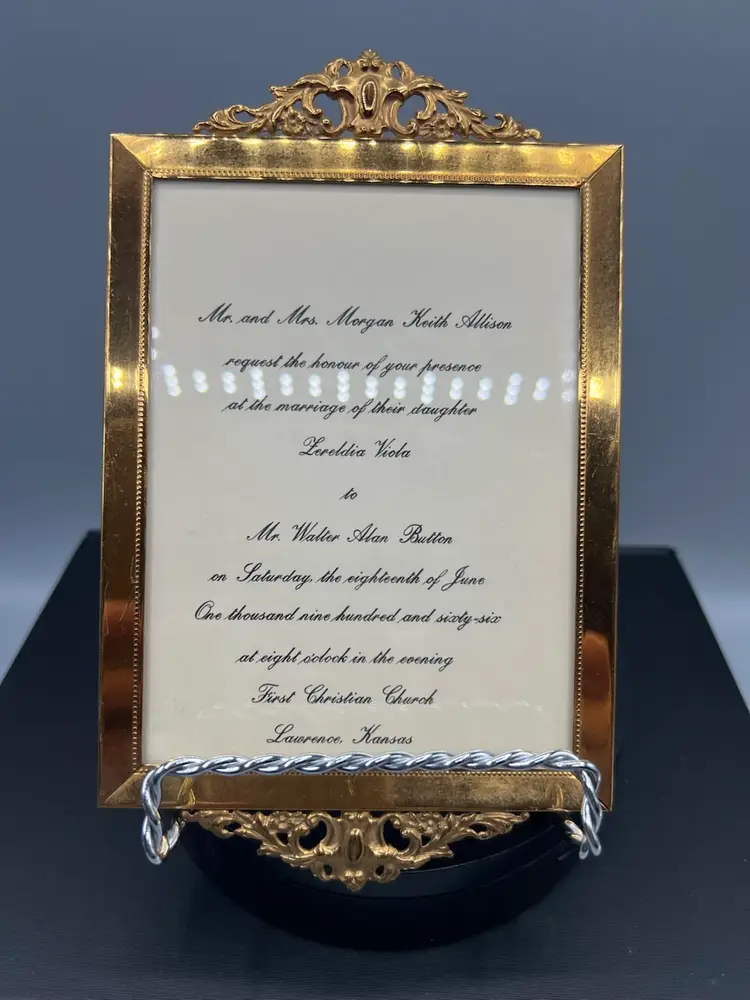 Mr. and Mrs. Morgan Keith Allison
request the honour of your presence
at the marriage of their daughter
Zereldia Viola
to
Mr. Walter Alan Button
on Saturday, the eighteenth of June
One thousand nine hundred and sixty-six
at eight o'clock in the evening
First Christian Church
Lawrence, Kansas